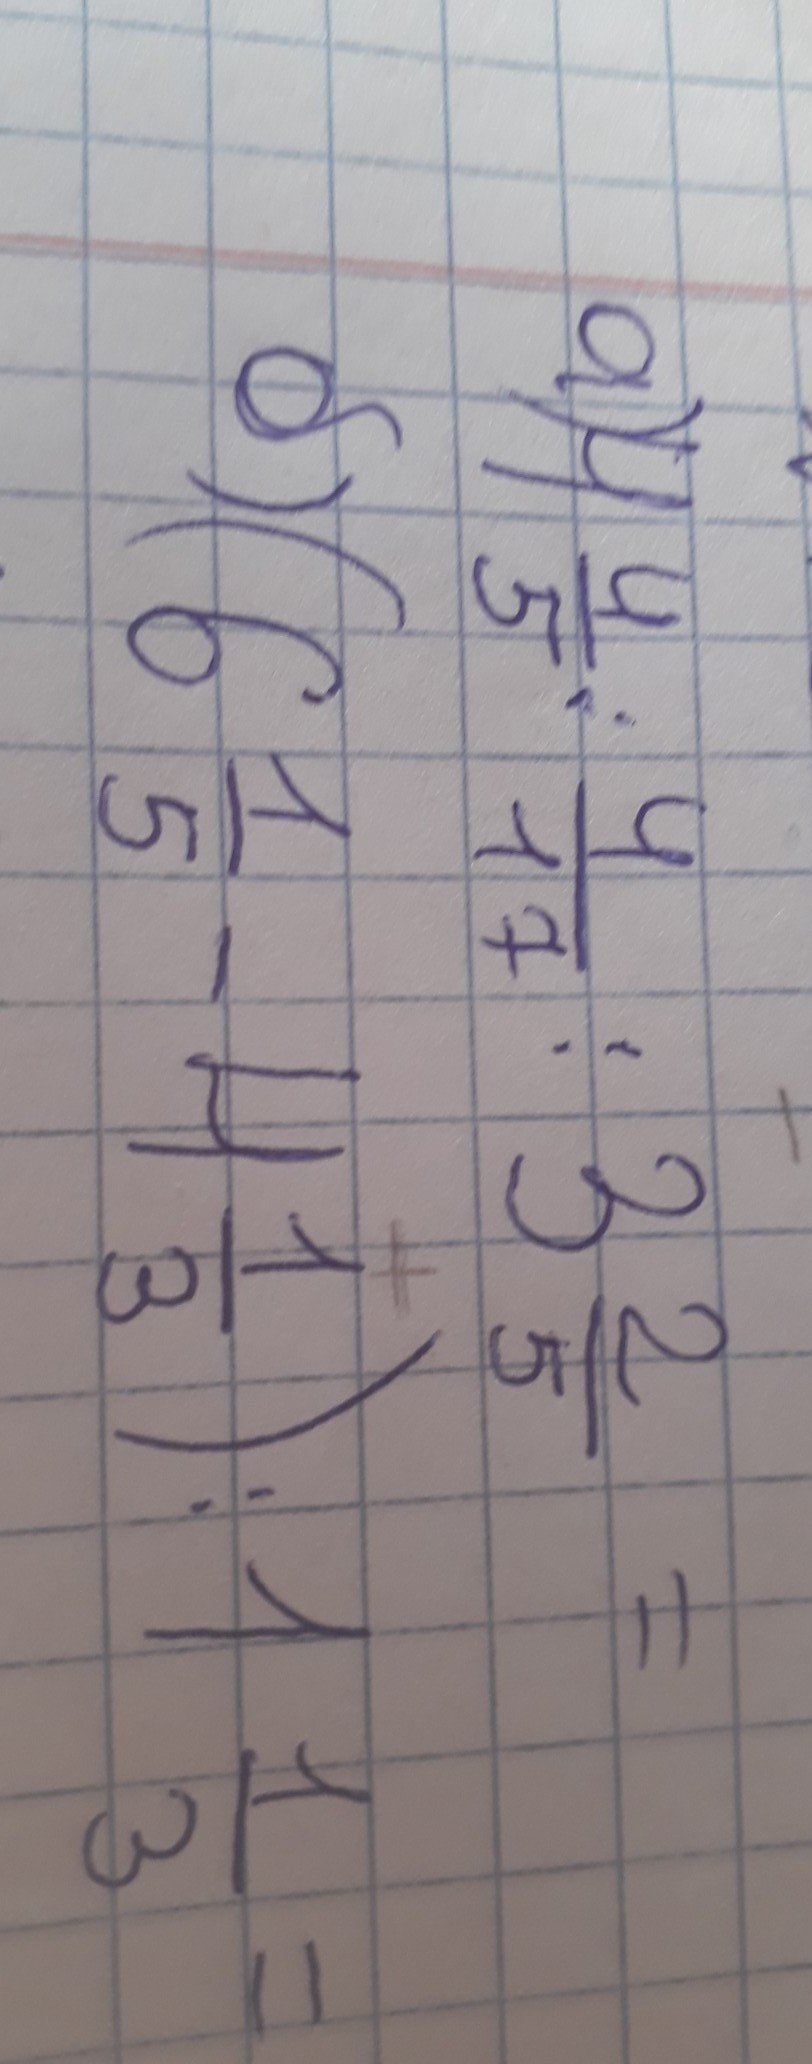 а) 4 4/5 : 4/17 : 3 2/5 =
б) (6 1/5 - 4 1/3) : 1 1/3 =